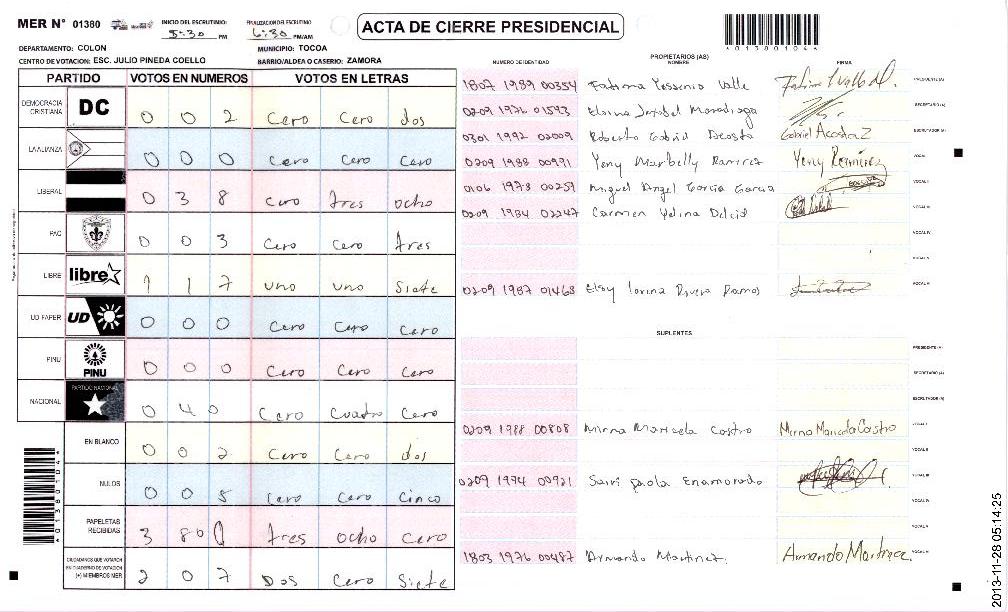 MER N° 01380
INICIO DEL ESCRUTINIO
5:30 PM
FINALIZACION DEL ESCRUTINIO
6:30 PM/AM
ACTA DE CIERRE PRESIDENCIAL
*01380104*
DEPARTAMENTO: COLON
MUNICIPIO: TOCOA
CENTRO DE VOTACION: ESC. JULIO PINEDA COELLO
BARRIO/ALDEA O CASERIO: ZAMORA
PARTIDO VOTOS EN NUMEROS VOTOS EN LETRAS
DEMOCRACIA CRISTIANA DC 0 0 2 Cero Cero dos
LA ALIANZA 0 0 0 Cero Cero Cero
LIBERAL 0 3 8 Cero tres ocho
PAC 0 0 3 Cero Cero tres
LIBRE libre 1 1 7 uno uno Siete
UD FAPER UD 0 0 0 Cero Cero Cero
PINU PINU 0 0 0 Cero Cero Cero
NACIONAL PARTIDO NACIONAL 0 4 0 Cero Cuatro Cero
EN BLANCO 0 0 2 Cero Cero dos
NULOS 0 0 5 Cero Cero Cinco
PAPELETAS RECIBIDAS 3 8 0 tres ocho Cero
CIUDADANOS QUE VOTARON EN CUADERNO DE VOTACION (+) MIEMBROS MER 2 0 7 Dos Cero Siete
*01380104*
PROPIETARIOS (AS)
NUMERO DE IDENTIDAD NOMBRE FIRMA
1807 1989 00354 Fatima Yessenia Valle PRESIDENTE (A)
0209 1976 01593 Isabel SECRETARIO (A)
0301 1992 02009 Roberto Gabriel Acosta Gabriel Acosta Z ESCRUTADOR (A)
0209 1988 00971 Yeny Marbelly Ramirez Yeny Ramirez VOCAL
0106 1973 00259 Miguel Angel Garcia Garcia VOCAL II
0209 1984 02247 Carmen Yelina Delcid VOCAL III
VOCAL IV
VOCAL V
0209 1987 01463 Elsy Lorena Rivera Ramos VOCAL VI
SUPLENTES
PRESIDENTE (A)
SECRETARIO (A)
ESCRUTADOR (A)
0209 1988 00808 Mirna Maricela Castro Mirna Maricela Castro VOCAL I
VOCAL II
0209 1994 00921 Sairi paola Enamorado VOCAL III
VOCAL IV
VOCAL V
1803 1976 00487 Armando Martinez Armando Martinez VOCAL VI
2013-11-28 05:14:25